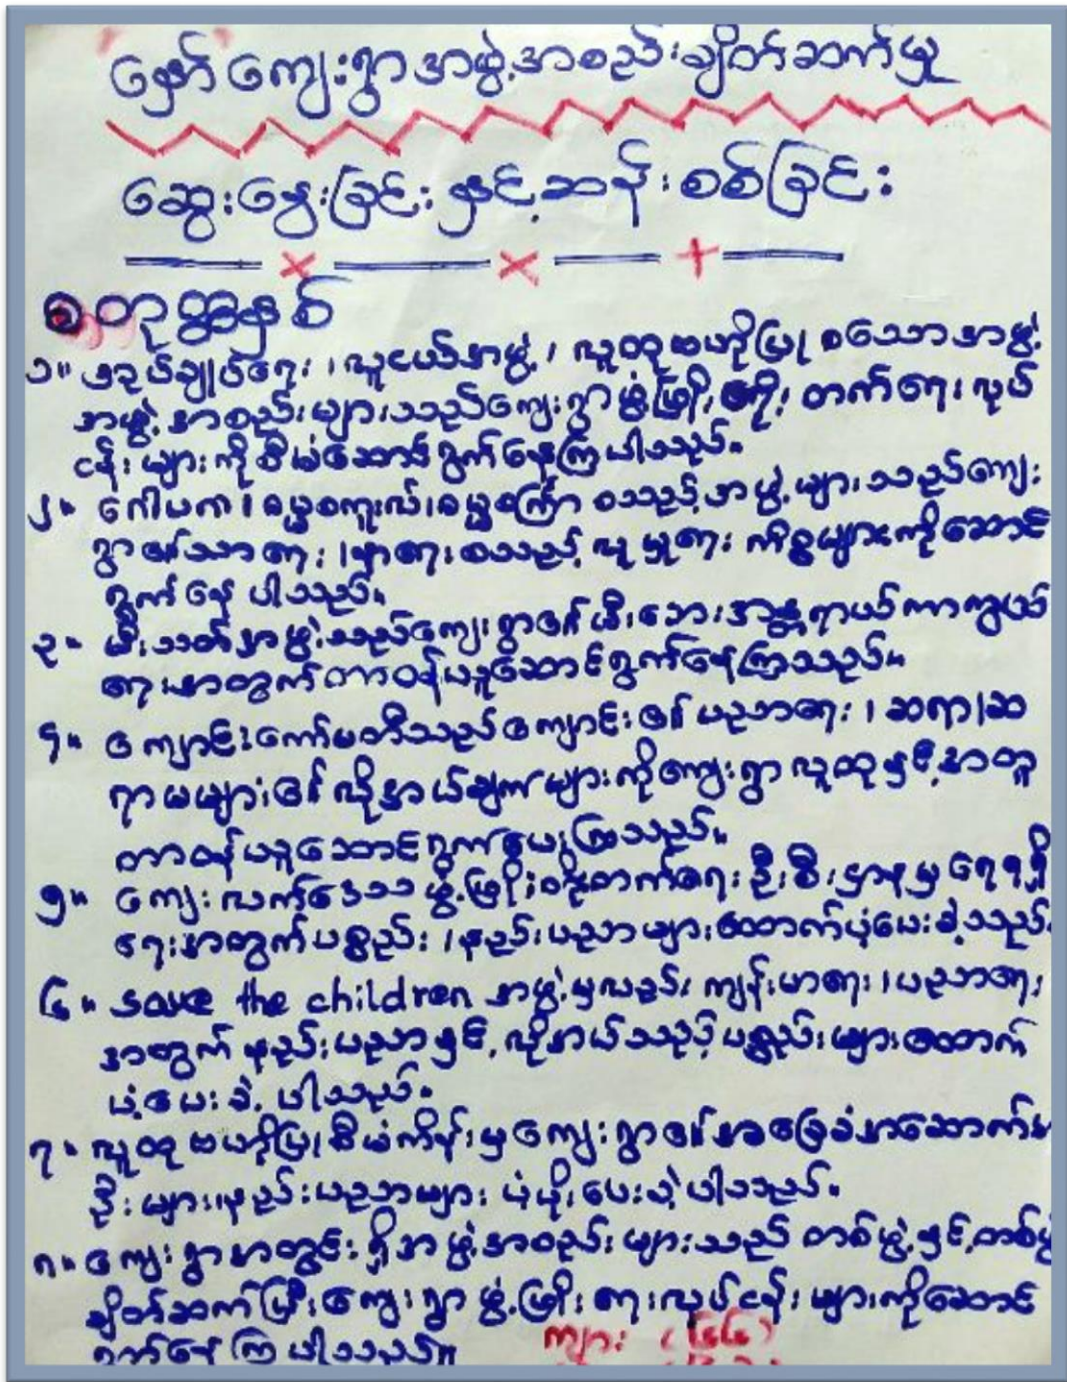 နှော် ကျေးရွာ အဖွဲ့အစည်းချိတ်ဆက်မှု
ဆွေးနွေးခြင်း နှင့် ဆန်းစစ်ခြင်း
စတုတ္ထနှစ်
၁။ အုပ်ချုပ်ရေး ၊ လူငယ်အဖွဲ့ ၊ လူထုဗဟိုပြု စသောအဖွဲ့
အဖွဲ့အစည်းများသည်ကျေးရွာဖွံ့ဖြိုးတိုးတက်ရေး လုပ်
ငန်းများကိုစီမံဆောင်ရွက်နေကြပါသည်။
၂။ ဂေါပက ၊ ဓမ္မစကူးလ်၊ဓမ္မစကြာ စသည့်အဖွဲ့များသည်ကျေး
ရွာ၏သာရေး ၊နာရေးစသည့်လူမှုရေး ကိစ္စများကိုဆောင်
ရွက်နေ ပါသည်။
၃။ မီးသတ်အဖွဲ့သည်ကျေးရွာ၏မီးဘေးအန္တရာယ်ကာကွယ်
ရေးအတွက်တာဝန်ယူဆောင်ရွက်နေကြသည်။
၄။ ကျောင်းကော်မတီသည်ကျောင်း၏ ပညာရေး ၊ ဆရာ၊ဆ
ရာမများ၏ လိုအပ်ချက်များကိုကျေးရွာ လူထုနှင့်အတူ
တာဝန်ယူဆောင်ရွက်ပေးကြသည်။
၅။ ကျေးလက်ဒေသဖွံ့ဖြိုးတိုးတက်ရေး ဦးစီးဌာနမှ ရေရရှိ
ရေးအတွက်ပစ္စည်း ၊နည်းပညာများထောက်ပံ့ပေးခဲ့သည်
၆။ save the children အဖွဲ့မှလည်း ကျန်းမာရေး ၊ပညာရေး
အတွက် နည်းပညာနှင့် လိုအပ်သည့်ပစ္စည်းများထောက်
ပံ့ပေးခဲ့ ပါသည်။
၇။ လူထုဗဟိုပြုစီမံကိန်းမှကျေးရွာ၏အခြေခံအဆောက်အ
ဦးများ၊နည်းပညာများ ပံ့ပိုးပေးခဲ့ပါသည်။
၈။ ကျေးရွာအတွင်းရှိအဖွဲ့အစည်းများသည် တစ်ဖွဲ့နှင့်တစ်ဖွဲ့
ချိတ်ဆက်ပြီးကျေးရွာဖွံ့ဖြိုးရေးလုပ်ငန်းများကိုဆောင်
ရွက်နေကြပါသည်။
ကျား (၆၆)